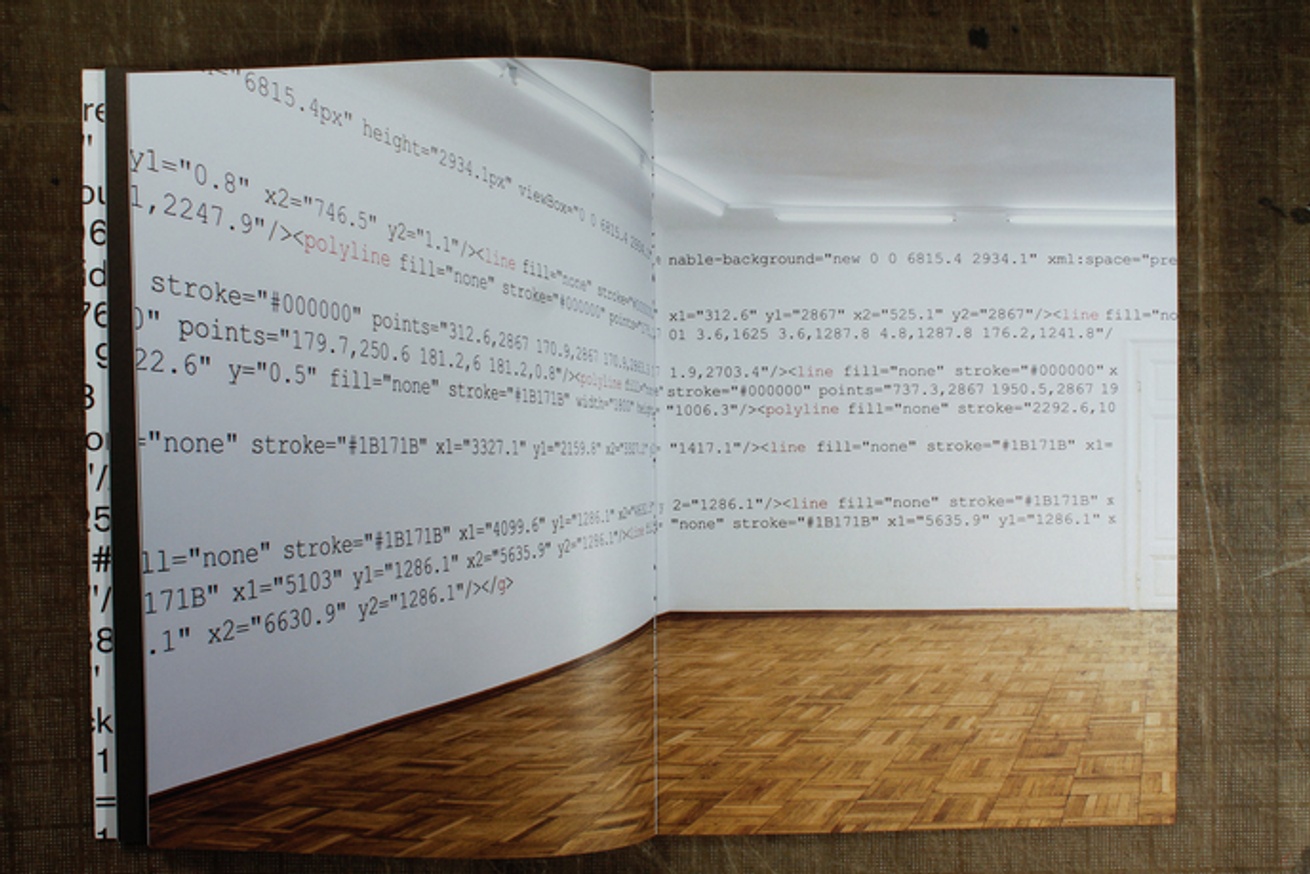 "6815.4px" height="2934.1px" viewBox="0 0 6815.4
y1="0.8" x2="746.5" y2="1.1"/><line fill="none"
1,2247.9"/><polyline fill="none" stroke="#000000"
stroke="#000000" points="312.6,2867 170.9,2867
0" points="179.7,250.6 181.2,6 181.2,0.8"/><polyline
22.6" y="0.5" fill="none" stroke="#1B171B"
="none" stroke="#1B171B" x1="3327.1" y1="2159.6"
ll="none" stroke="#1B171B" x1="4099.6" y1="1286.1"
171B" x1="5103" y1="1286.1" x2="5635.9" y2="1286.1"/><line
.1" x2="6630.9" y2="1286.1"/></g>
nable-background="new 0 0 6815.4 2934.1" xml:space="pre
x1="312.6" y1="2867" x2="525.1" y2="2867"/><line fill="no
01 3.6,1625 3.6,1287.8 4.8,1287.8 176.2,1241.8"/
1.9,2703.4"/><line fill="none" stroke="#000000" x
stroke="#000000" points="737.3,2867 1950.5,2867 19
"1006.3"/><polyline fill="none" stroke="2292.6,10
"1417.1"/><line fill="none" stroke="#1B171B" x1=
2="1286.1"/><line fill="none" stroke="#1B171B" x
"none" stroke="#1B171B" x1="5635.9" y1="1286.1" x